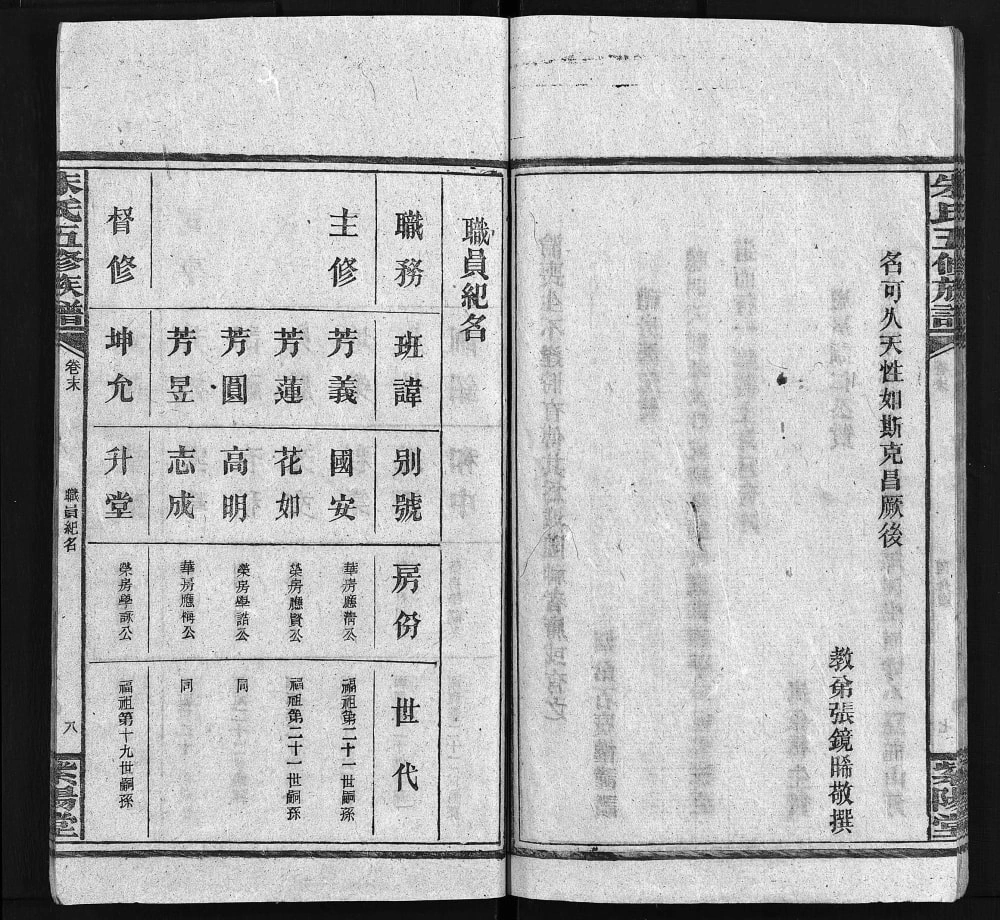 朱氏五修族譜
卷末
七
紫陽堂
名可久天性如斯克昌厥後
教弟張鏡晞敬撰
職員紀名
職務 班諱 別號 房份 世代
主修 芳義 國安 華房應清公 福祖第二十一世嗣孫
芳蓮 花如 榮房應賢公 福祖第二十一世嗣孫
芳圓 高明 榮房學誥公 同
芳昱 志成 華房應梅公 同
督修 坤允 升堂 榮房學詠公 福祖第十九世嗣孫
朱氏五修族譜
卷末
職員紀名
八
紫陽堂